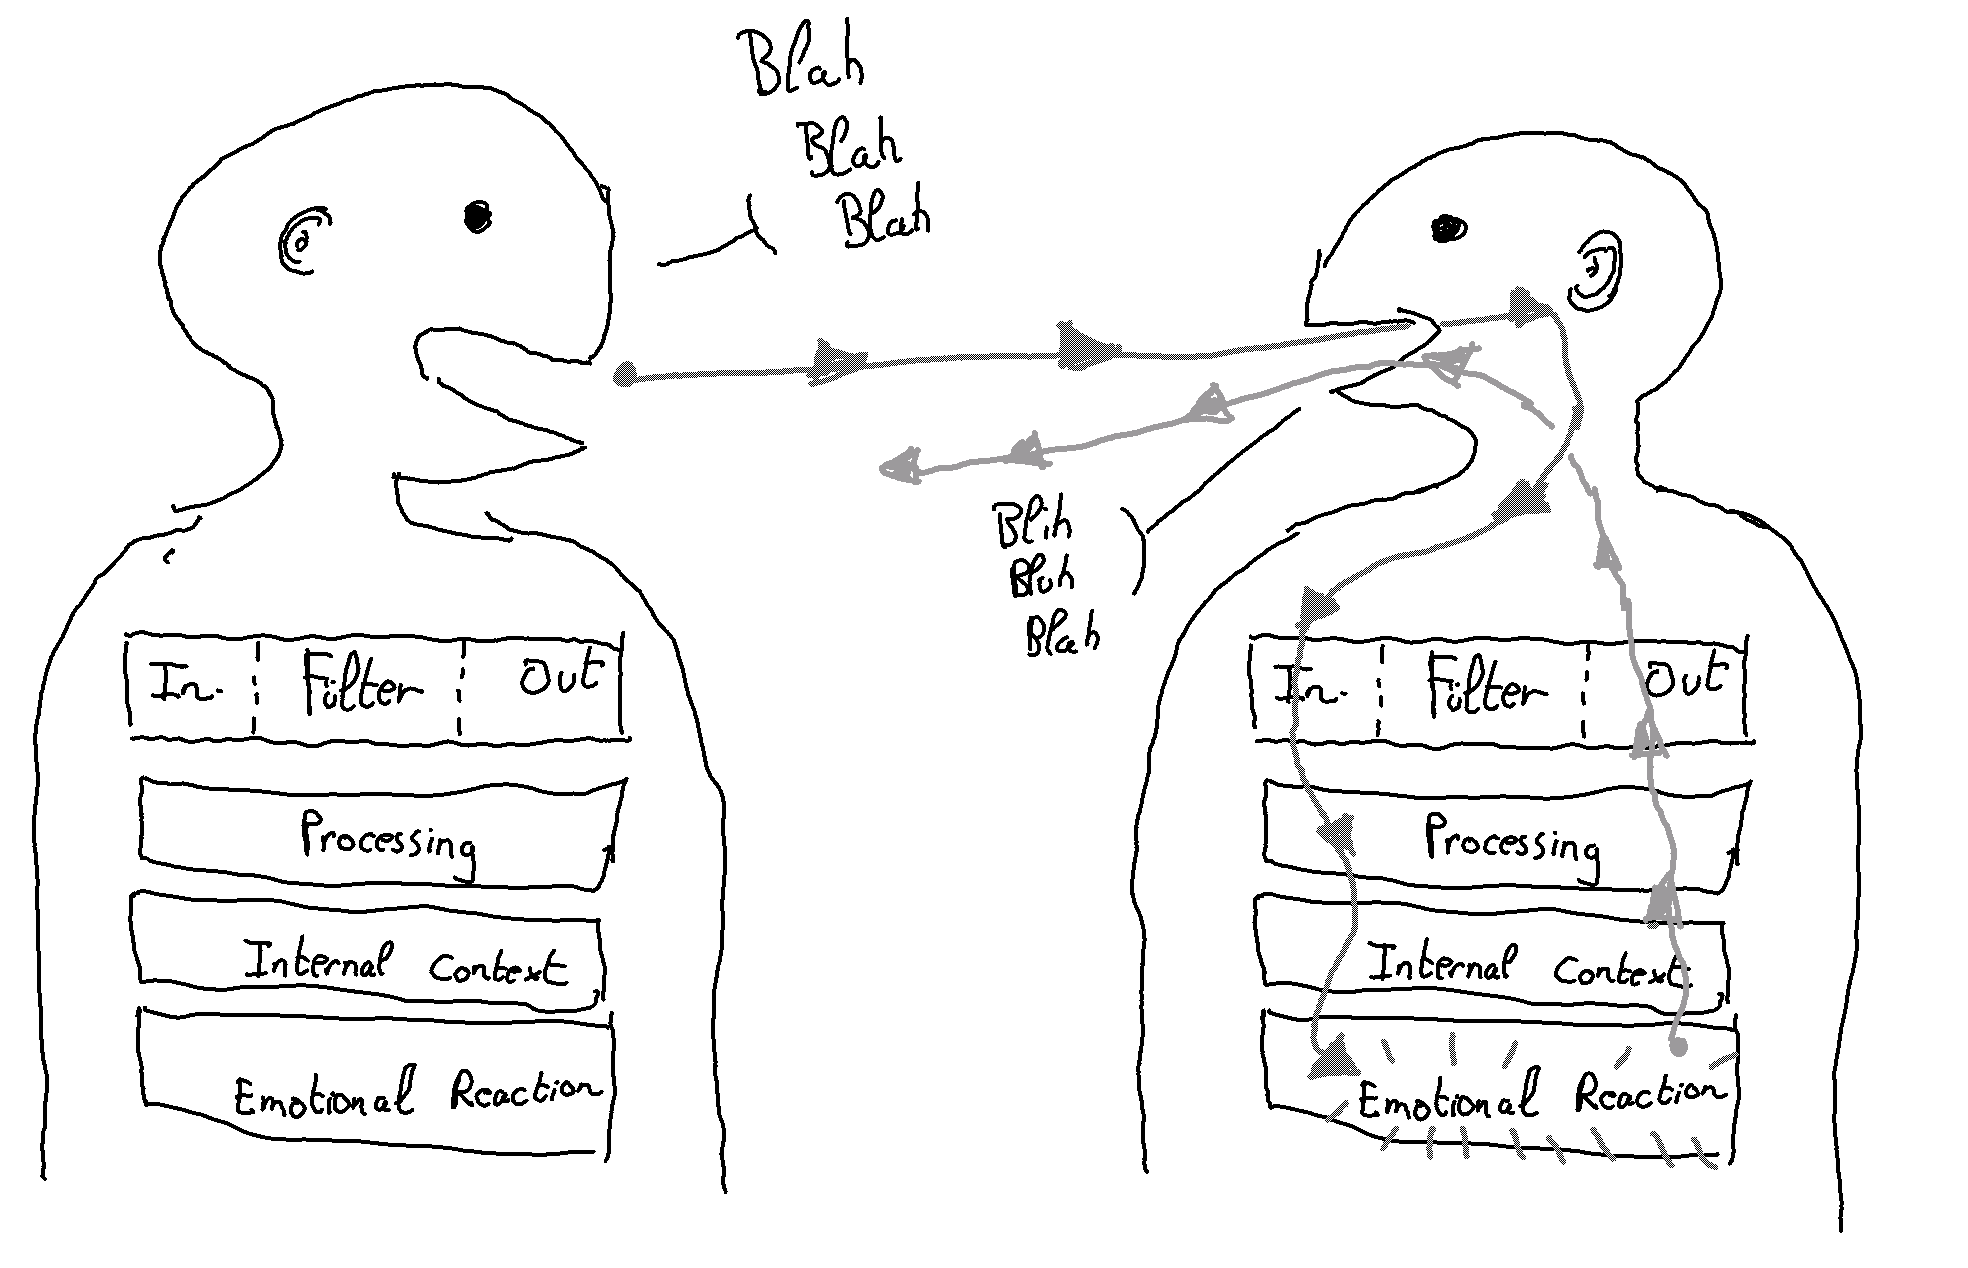 Blah
Blah
Blah
Blih
Bluh
Blah
In. Filter Out
Processing
Internal Context
Emotional Reaction
In. Filter Out
Processing
Internal Context
Emotional Reaction